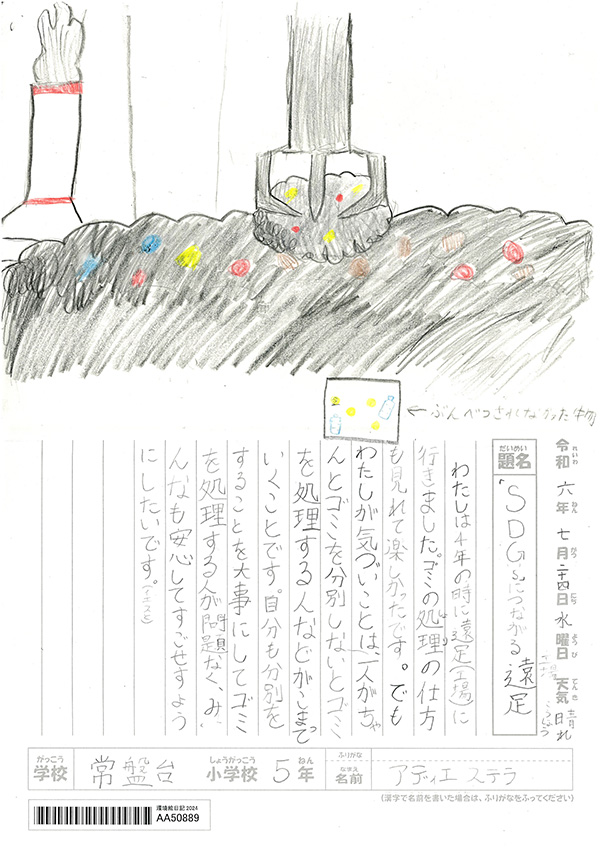 ←ぶんべつされなかった物
令和六年七月二十四日水曜日天気晴れ
題名「SDG'sにつながる遠足
工場
こうじょう
わたしは4年の時に遠足(工場)に
行きました。ゴミの処理の仕方
も見れて楽しかったです。でも
わたしが気づいことは、一人がちゃ
んとゴミを分別しないとゴミ
を処理する人などがこまって
いくことです。自分も分別を
することを大事にしてゴミ
を処理する人が問題なく、み
んなも安心してすごせすよう
にしたいです。
がっこう
学校 常盤台 小学校 5年
しょうがっこう ねん
ふりがな
なまえ
名前 アディエ ステラ
(漢字で名前を書いた場合は、ふりがなをふってください)
環境絵日記2024
AA50889